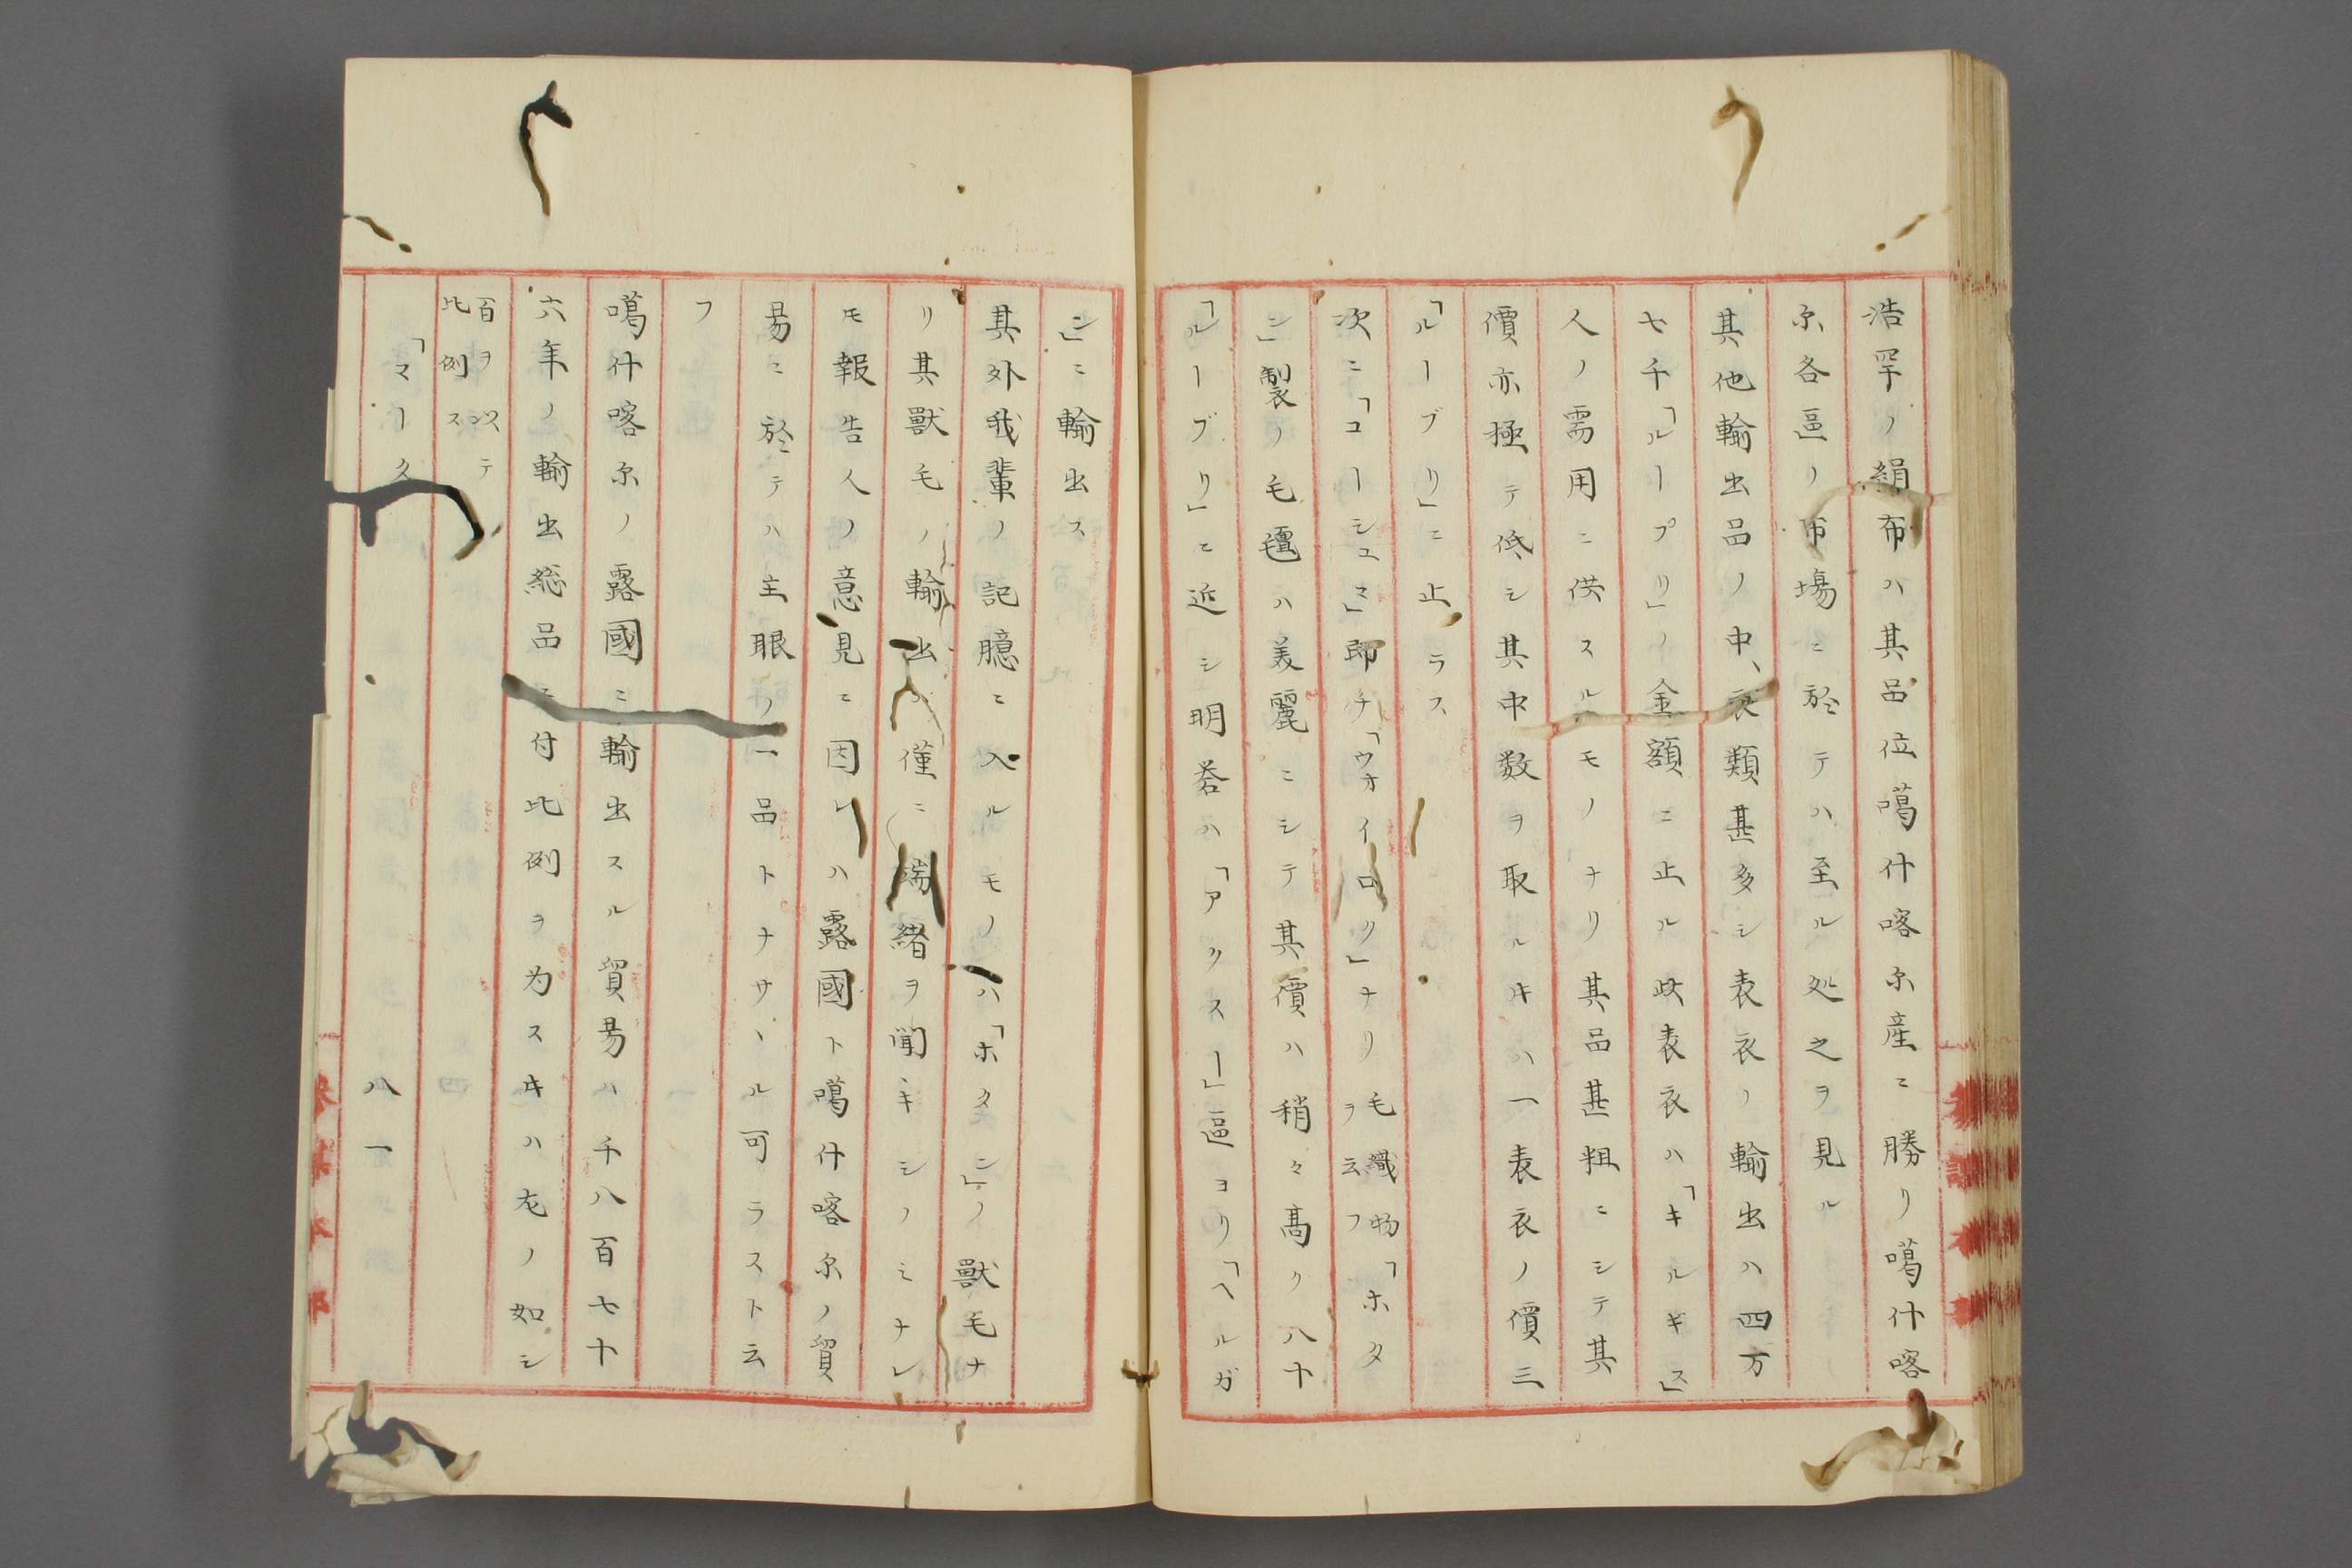 浩罕ノ絹布ハ其品位噶什喀尓産ニ勝リ噶什喀
尓各區ノ市塲ニ於テハ至ル処之ヲ見ル
其他輸出品ノ中、衣類甚多シ表衣ノ輸出ハ四万
七千「ルーブリ」ノ金額ニ止ル此表衣ハ「キルギス」
人ノ需用ニ供スルモノナリ其品甚粗ニシテ其
價亦極テ低シ其中数ヲ取ルキハ一表衣ノ價三
「ルーブリ」ニ止ラス
次ニ「コーシユマ」即チ「ウオイロク」ナリ毛織物ヲ云フ「ホタ
ン」製ノ毛氊ハ美麗ニシテ其價ハ稍々髙ク八十
「ルーブリ」ニ近シ明荅ハ「アクスー」區ヨリ「ヘルガ
ン」ニ輸出ス
其外我輩ノ記臆ニ入ルモノハ「ホタン」ノ獸毛ナ
リ其獸毛ノ輸出ハ僅ニ端緒ヲ聞キシノミナレ
𪜈報告人ノ意見ニ因レハ露國ト噶什喀尓ノ貿
昜ニ於テハ主眼ノ一品トナサヽル可ラスト云
フ
噶什喀尓ノ露國ニ輸出スル貿昜ハ千八百七十
六年ノ輸出総品ニ付比例ヲ为スキハ左ノ如シ
百ヲ以テ
比例ス
「マータ 八一